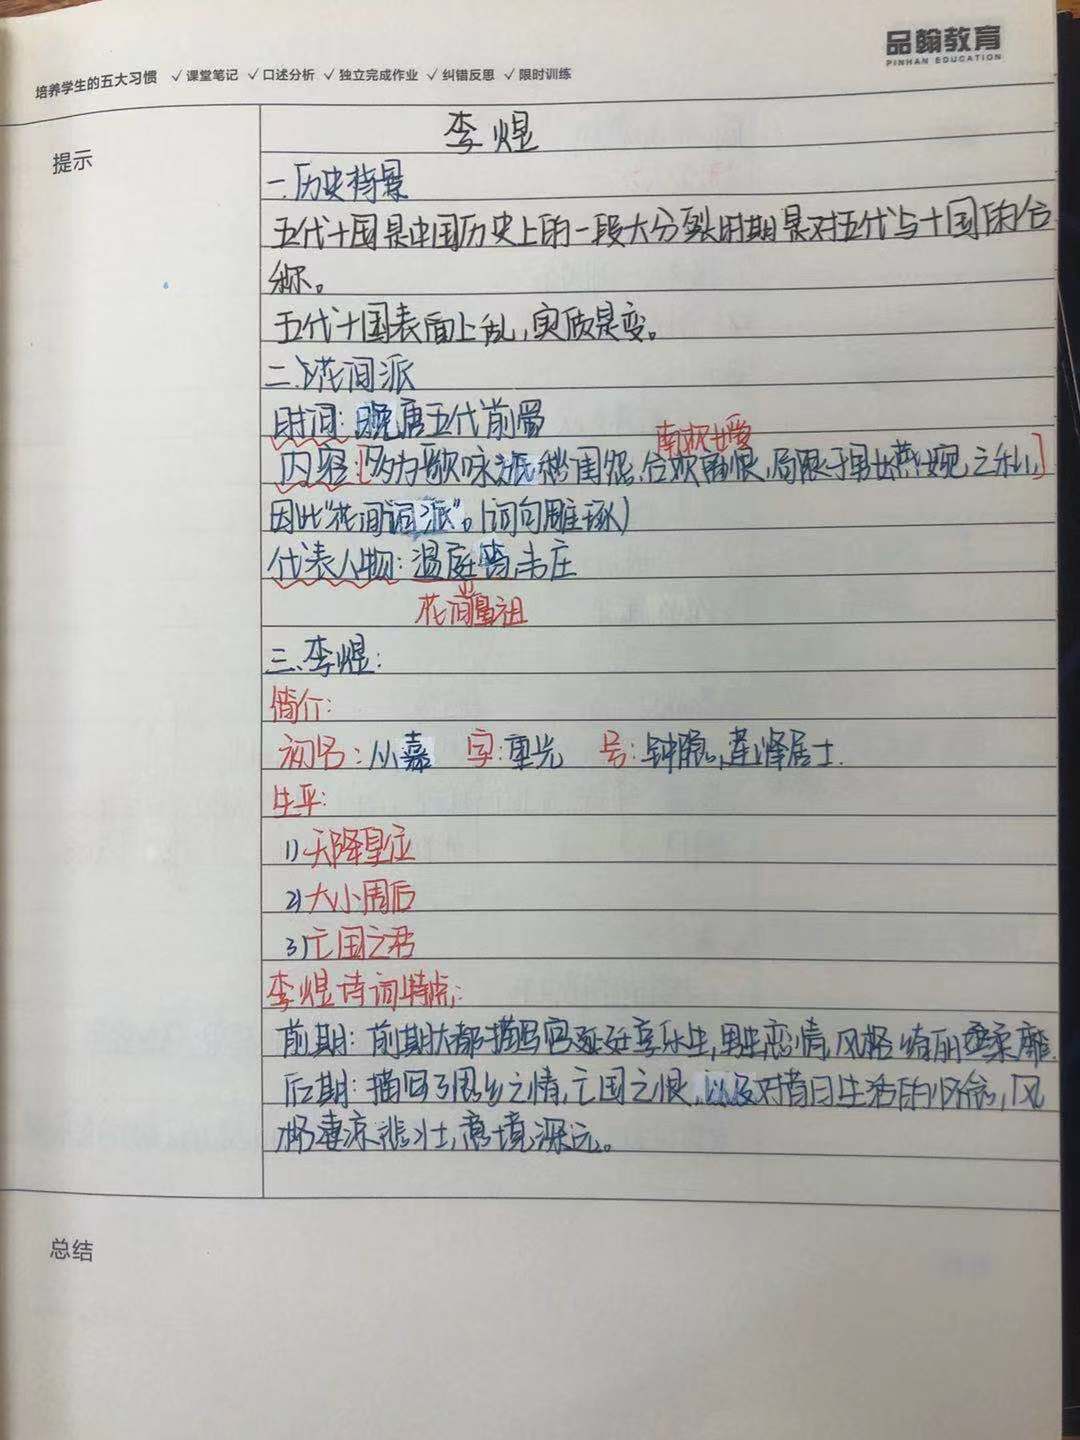 品翰教育
PINHAN EDUCATION
培养学生的五大习惯 ✓课堂笔记 ✓口述分析 ✓独立完成作业 ✓纠错反思 ✓限时训练
提示
李煜
一.历史背景
五代十国是中国历史上的一段大分裂时期是对五代与十国的合
称。
五代十国表面上乱,实质是变。
二.花间派
时间:晚唐五代前蜀
男欢女爱
内容:多为歌咏旅愁闺怨,合欢离恨,局限于男女燕婉之私,]
因此"花间词派"。(词句雕琢)
代表人物:温庭筠,韦庄
花间鼻祖
三.李煜:
简介:
初名:从嘉 字:重光 号:钟隐,莲峰居士.
生平:
1)天降皇位
2)大小周后
3)亡国之君
李煜诗词特点:
前期:前期大都描写宫廷享乐生,男女恋情,风格绮丽柔靡.
后期:描写了思乡之情,亡国之恨,以及对昔日生活的怀念,风
格凄凉悲壮,意境深远。
总结